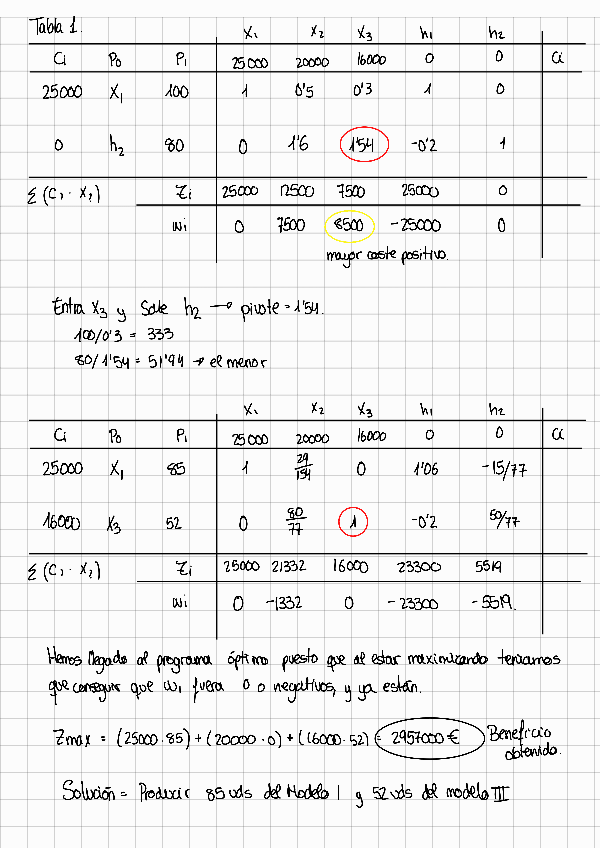 Tabla 1.
X₁ X₂ X₃ h₁ h₂
Ci P₀ P₁ 25000 20000 16000 0 0 Ci
25000 X₁ 100 1 0'5 0'3 1 0
0 h₂ 80 0 1'6 1'54 -0'2 1
Σ (C₁ · X₂) Zi 25000 12500 7500 25000 0
wi 0 7500 8500 -25000 0
mayor coste positivo.
Entra X₃ y Sale h₂ → pivote = 1'54.
100/0'3 = 333
80/1'54 = 51'94 → el menor
X₁ X₂ X₃ h₁ h₂
Ci P₀ P₁ 25000 20000 16000 0 0 Ci
25000 X₁ 85 1 29/154 0 1'06 -15/77
16000 X₃ 52 0 80/77 1 -0'2 50/77
Σ (C₁ · X₂) Zi 25000 21332 16000 23300 5519
wi 0 -1332 0 -23300 -5519.
Hemos llegado al programa óptimo puesto que al estar maximizando teniamos
que conseguir que w₁ fuera 0 o negativos, y ya están.
Zmax = (25000·85) + (20000·0) + (16000·52) = 2957000 € Beneficio
obtenido.
Solución = Producir 85 uds del Modelo I y 52 uds del modelo III